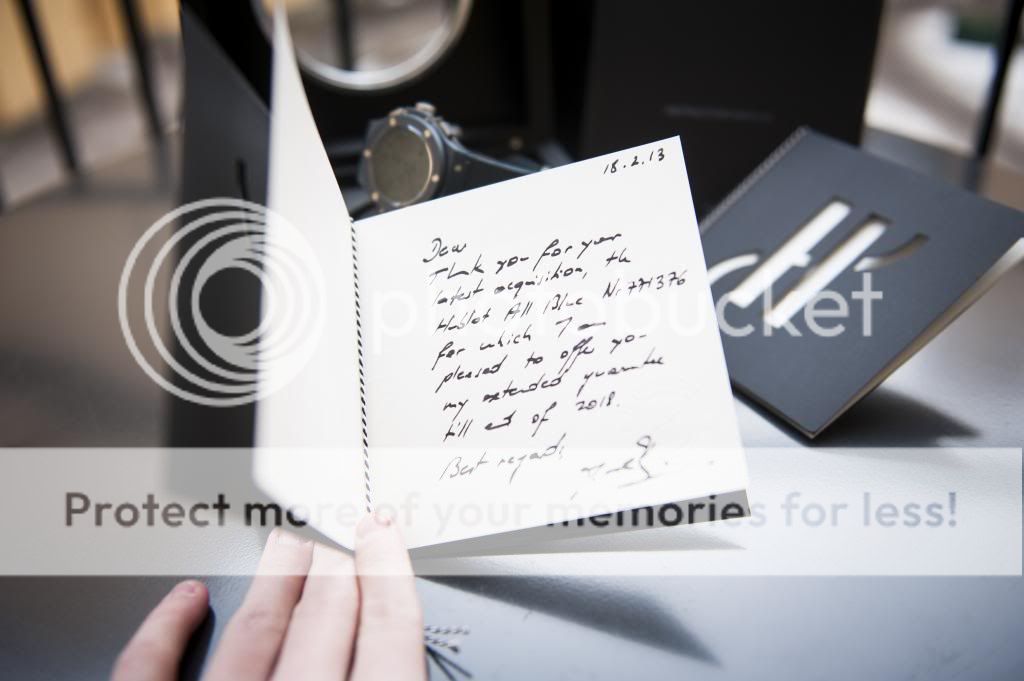 18.2.13
Dear
Thank you for your
latest acquisition, the
Hublot All Blue Nr. 771376
for which I am
pleased to offer you
my extended guarantee
till end of 2018.
Best regards
photobucket
Protect more of your memories for less!